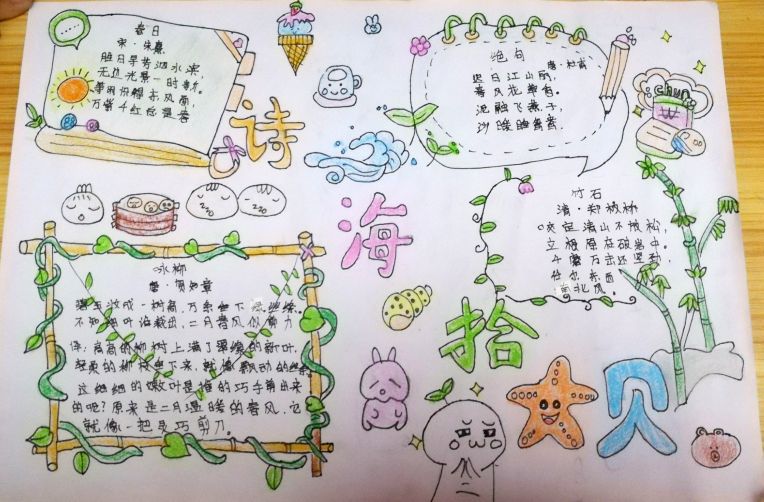 春日
宋·朱熹
胜日寻芳泗水滨,
无边光景一时新。
等闲识得东风面,
万紫千红总是春
诗
海
拾
贝
绝句
唐·杜甫
迟日江山丽,
春风花草香。
泥融飞燕子,
沙暖睡鸳鸯.
chups
竹石
清·郑板桥
咬定青山不放松,
立根原在破岩中。
千磨万击还坚劲,
任尔东西
南北风。
zzo
zzo
咏柳
唐·贺知章
碧玉妆成一树高,万条垂下绿丝绦。
不知细叶谁裁出,二月春风似剪刀
译:高高的柳树上满了翠绿的新叶,
轻柔的柳枝垂下来,就像飘动的丝绦
这细细的嫩叶是谁的巧手剪出来
的呢?原来是二月温暖的春风,它
就像一把灵巧剪刀。